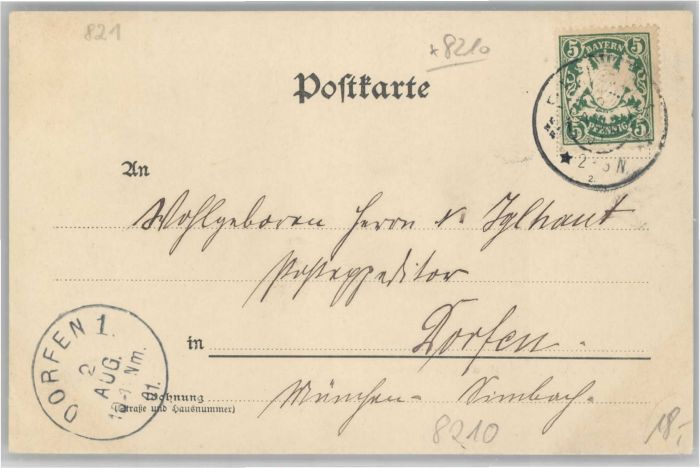 821
*8210
Postkarte
5 BAYERN 5
5 PFENNIG 5
2-3 N.
An
Wohlgeboren Herrn v Iglhaut
Postexpeditor
in Dorfen.
DORFEN 1.
2
AUG.
Nm.
01.
Wohnung
(Straße und Hausnummer)
München-Simbach.
8210
18,-